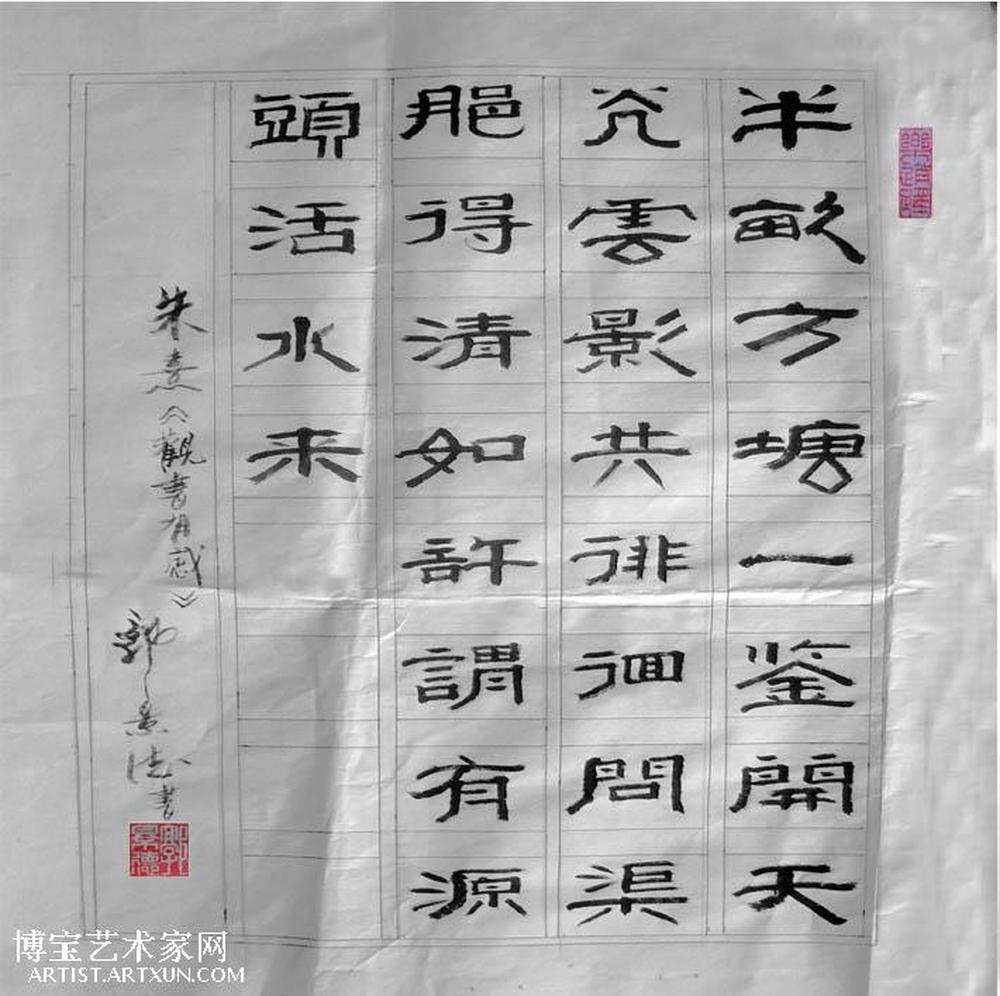 半畝方塘一鉴開天
光雲影共徘徊問渠
那得清如許謂有源
頭活水来
朱熹《觀書有感》
郭景德書
郭景德
博宝艺术家网
ARTIST.ARTXUN.COM